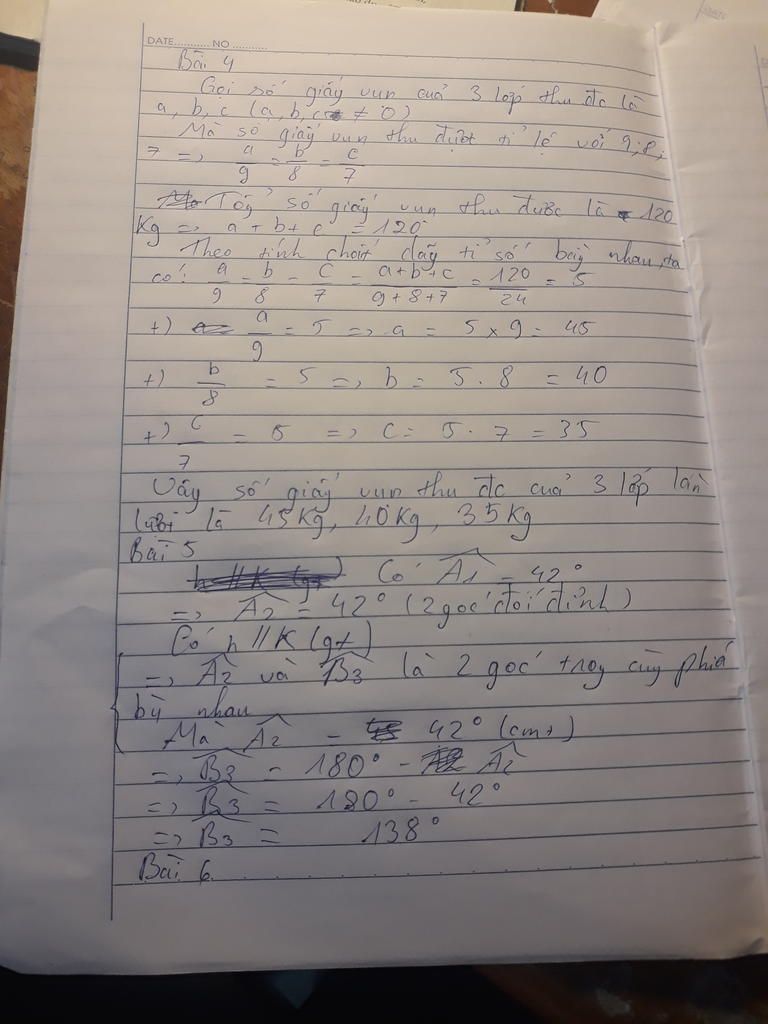 DATE........... NO ...........
Bài 4
Gọi số giấy vụn của 3 lớp thu đc là
a, b, c (a, b, c ≠ 0)
Mà số giấy vụn thu được tỉ lệ với 9; 8;
7 => a/9 = b/8 = c/7
Tổg số giấy vụn thu được là 120
Kg => a + b + c = 120
Theo tính chất dãy tỉ số bằg nhau, ta
có: a/9 = b/8 = c/7 = a+b+c/9+8+7 = 120/24 = 5
+) a/9 = 5 => a = 5 x 9 = 45
+) b/8 = 5 => b = 5 . 8 = 40
+) c/7 = 5 => c = 5 . 7 = 35
Vậy số giấy vụn thu đc của 3 lớp lần
lượt là 45Kg, 40Kg, 35Kg
Bài 5
Có Â1 = 42°
=> Â2 = 42° (2 góc đối đỉnh)
Có h // K (gt)
=> Â2 và B̂3 là 2 góc trog cùg phía
bù nhau
Mà Â2 = 42° (cmt)
=> B̂3 = 180° - Â2
=> B̂3 = 180° - 42°
=> B̂3 = 138°
Bài 6